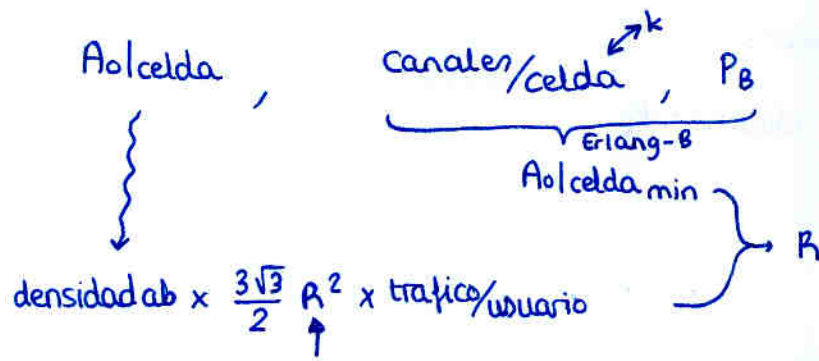 Ao|celda , canales/celda ↔ k , PB
Erlang-B
Ao|celda min
→ R
densidad ab x 3√3/2 R² x trafico/usuario